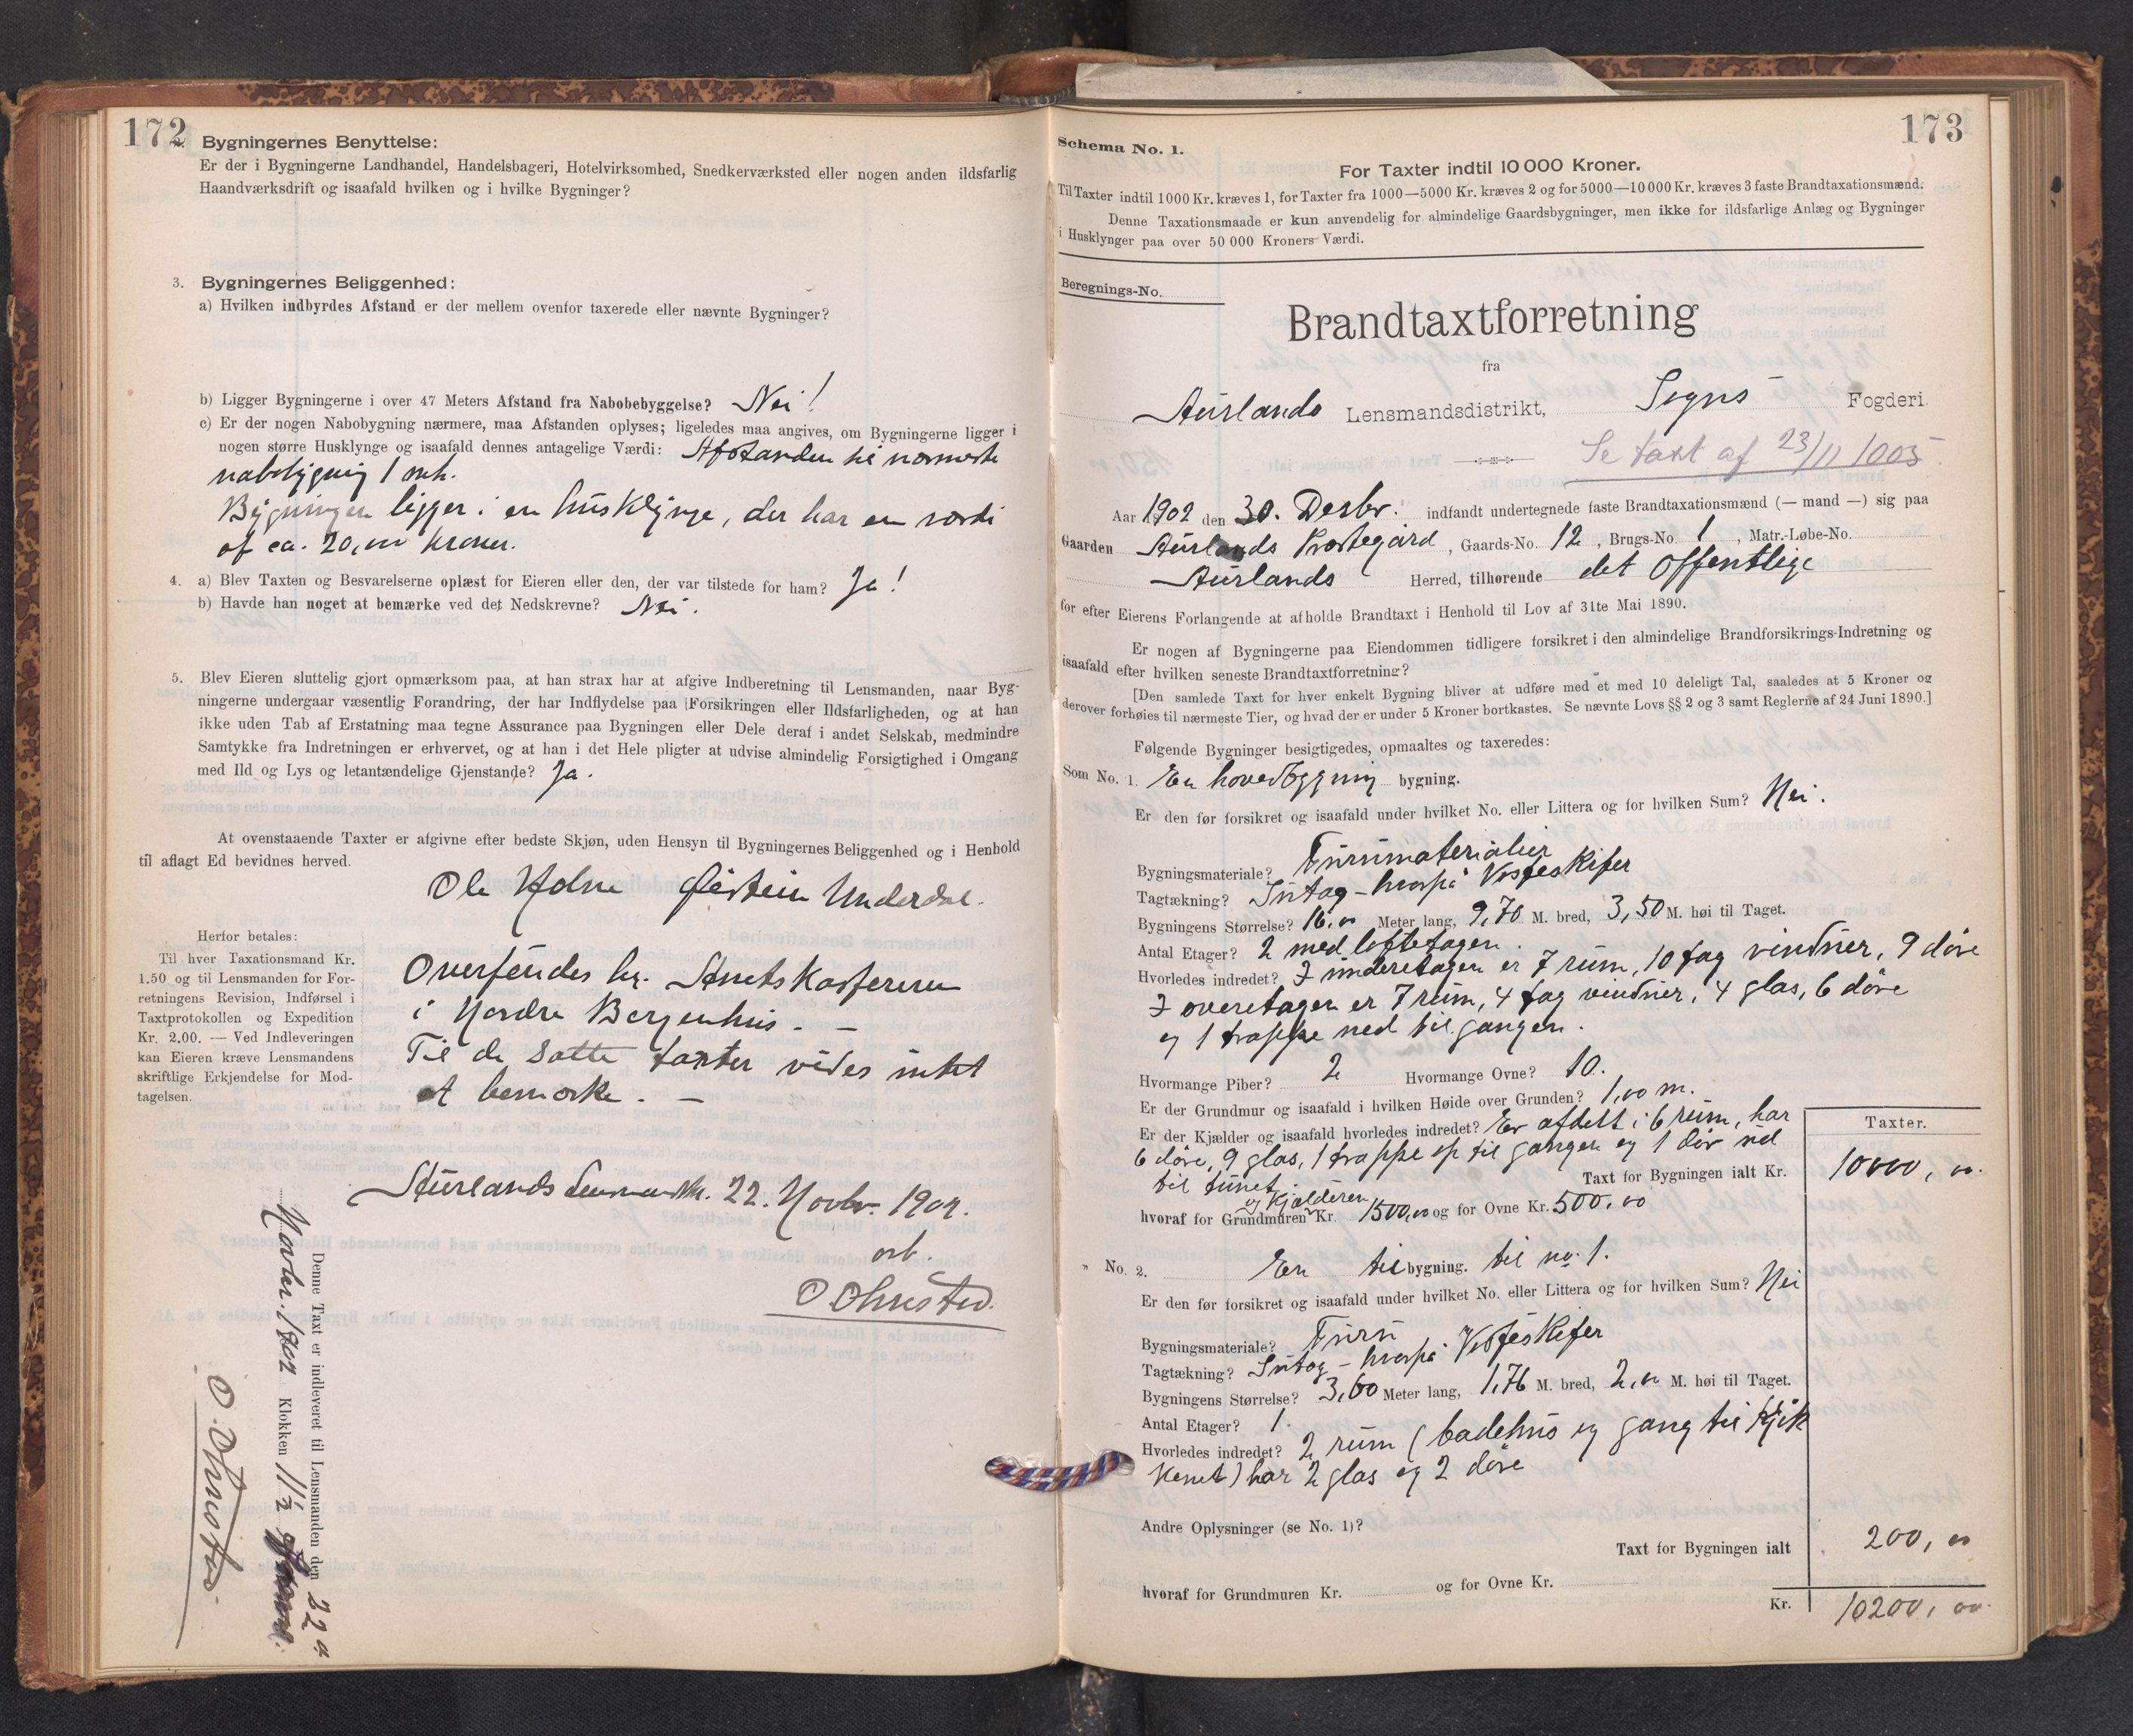 172
Bygningernes Benyttelse:
Er der i Bygningerne Landhandel, Handelsbageri, Hotelvirksomhed, Snedkerværksted eller nogen anden ildsfarlig
Haandværksdrift og isaafald hvilken og i hvilke Bygninger?
3. Bygningernes Beliggenhed:
a) Hvilken indbyrdes Afstand er der mellem ovenfor taxerede eller nævnte Bygninger?
b) Ligger Bygningerne i over 47 Meters Afstand fra Nabobebyggelse? Nei!
c) Er der nogen Nabobygning nærmere, maa Afstanden oplyses; ligeledes maa angives, om Bygningerne ligger i
nogen større Husklynge og isaafald dennes antagelige Værdi: Afstanden til nærmeste
nabobygning 1 mtr.
Bygningen ligger i en husklynge, der har en værdi
af ca. 20,000 Kroner.
4. a) Blev Taxten og Besvarelserne oplæst for Eieren eller den, der var tilstede for ham? Ja!
b) Havde han noget at bemærke ved det Nedskrevne? Nei.
5. Blev Eieren sluttelig gjort opmærksom paa, at han strax har at afgive Indberetning til Lensmanden, naar Byg-
ningerne undergaar væsentlig Forandring, der har Indflydelse paa Forsikringen eller Ildsfarligheden, og at han
ikke uden Tab af Erstatning maa tegne Assurance paa Bygningen eller Dele deraf i andet Selskab, medmindre
Samtykke fra Indretningen er erhvervet, og at han i det Hele pligter at udvise almindelig Forsigtighed i Omgang
med Ild og Lys og letantændelige Gjenstande? Ja.
At ovenstaaende Taxter er afgivne efter bedste Skjøn, uden Hensyn til Bygningernes Beliggenhed og i Henhold
til aflagt Ed bevidnes herved.
Ole Holme Øistein Underdal.
Herfor betales:
Til hver Taxationsmand Kr.
1.50 og til Lensmanden for For-
retningens Revision, Indførsel i
Taxtprotokollen og Expedition
Kr. 2.00. — Ved Indleveringen
kan Eieren kræve Lensmandens
skriftlige Erkjendelse for Mod-
tagelsen.
Oversendes hr. Amtskasseren
i Nordre Bergenhus. —
Til de satte taxter vides intet
at bemærke. —
Aurlands Lensmanskr. 22. Novbr. 1902.
arb.
O Ohnstad.
Denne Taxt er indleveret til Lensmanden den 22de
Novbr. 1902 Klokken 11½
O. Ohnstad
173
Schema No. 1.
For Taxter indtil 10 000 Kroner.
Til Taxter indtil 1000 Kr. kræves 1, for Taxter fra 1000—5000 Kr. kræves 2 og for 5000—10 000 Kr. kræves 3 faste Brandtaxationsmænd.
Denne Taxationsmaade er kun anvendelig for almindelige Gaardsbygninger, men ikke for ildsfarlige Anlæg og Bygninger
i Husklynger paa over 50 000 Kroners Værdi.
Beregnings-No.
Brandtaxtforretning
fra
Aurlands Lensmandsdistrikt, Sogns Fogderi.
Se taxt af 23/11 1005
Aar 1902 den 30. Desbr. indfandt undertegnede faste Brandtaxationsmænd (— mand —) sig paa
Gaarden Aurlands Prestegård, Gaards-No. 12, Brugs-No. 1, Matr.-Løbe-No.
Aurlands Herred, tilhørende det Offentlige
for efter Eierens Forlangende at afholde Brandtaxt i Henhold til Lov af 31te Mai 1890.
Er nogen af Bygningerne paa Eiendommen tidligere forsikret i den almindelige Brandforsikrings-Indretning og
isaafald efter hvilken seneste Brandtaxtforretning?
[Den samlede Taxt for hver enkelt Bygning bliver at udføre med et med 10 deleligt Tal, saaledes at 5 Kroner og
derover forhøies til nærmeste Tier, og hvad der er under 5 Kroner bortkastes. Se nævnte Lovs §§ 2 og 3 samt Reglerne af 24 Juni 1890.]
Følgende Bygninger besigtigedes, opmaaltes og taxeredes:
Som No. 1. En hovedbygning bygning.
Er den før forsikret og isaafald under hvilket No. eller Littera og for hvilken Sum? Nei.
Bygningsmateriale? Furumaterialier
Tagtækning? Sutag – hvorpå Vosseskifer
Bygningens Størrelse? 16,00 Meter lang, 9,70 M. bred, 3,50 M. høi til Taget.
Antal Etager? 2 med loftetagen.
Hvorledes indredet? I underetagen er 7 rum, 10 fag vinduer, 9 døre
I overetagen er 7 rum, 4 fag vinduer, 4 glas, 6 døre
og 1 trappe ned til gangen.
Hvormange Piber? 2 Hvormange Ovne? 10.
Er der Grundmur og isaafald i hvilken Høide over Grunden? 1,00 m.
Er der Kjælder og isaafald hvorledes indredet? Er afdelt i 6 rum, har
6 døre, 9 glas, 1 trappe op til gangen og 1 dør ud
til tunet
Taxter.
Taxt for Bygningen ialt Kr. 10000,00.
og Kjælderen
hvoraf for Grundmuren Kr. 1500,00 og for Ovne Kr. 500,00
" No. 2. En til bygning. til no. 1.
Er den før forsikret og isaafald under hvilket No. eller Littera og for hvilken Sum? Nei
Bygningsmateriale? Furu
Tagtækning? Sutag – hvorpå Vosseskifer
Bygningens Størrelse? 3,60 Meter lang, 1,76 M. bred, 2,00 M. høi til Taget.
Antal Etager? 1.
Hvorledes indredet? 2 rum (badehus og gang til kjøk
kenet) har 2 glas og 2 døre
Andre Oplysninger (se No. 1)?
Taxt for Bygningen ialt 200,00
hvoraf for Grundmuren Kr. og for Ovne Kr.
Kr. 10200,00.